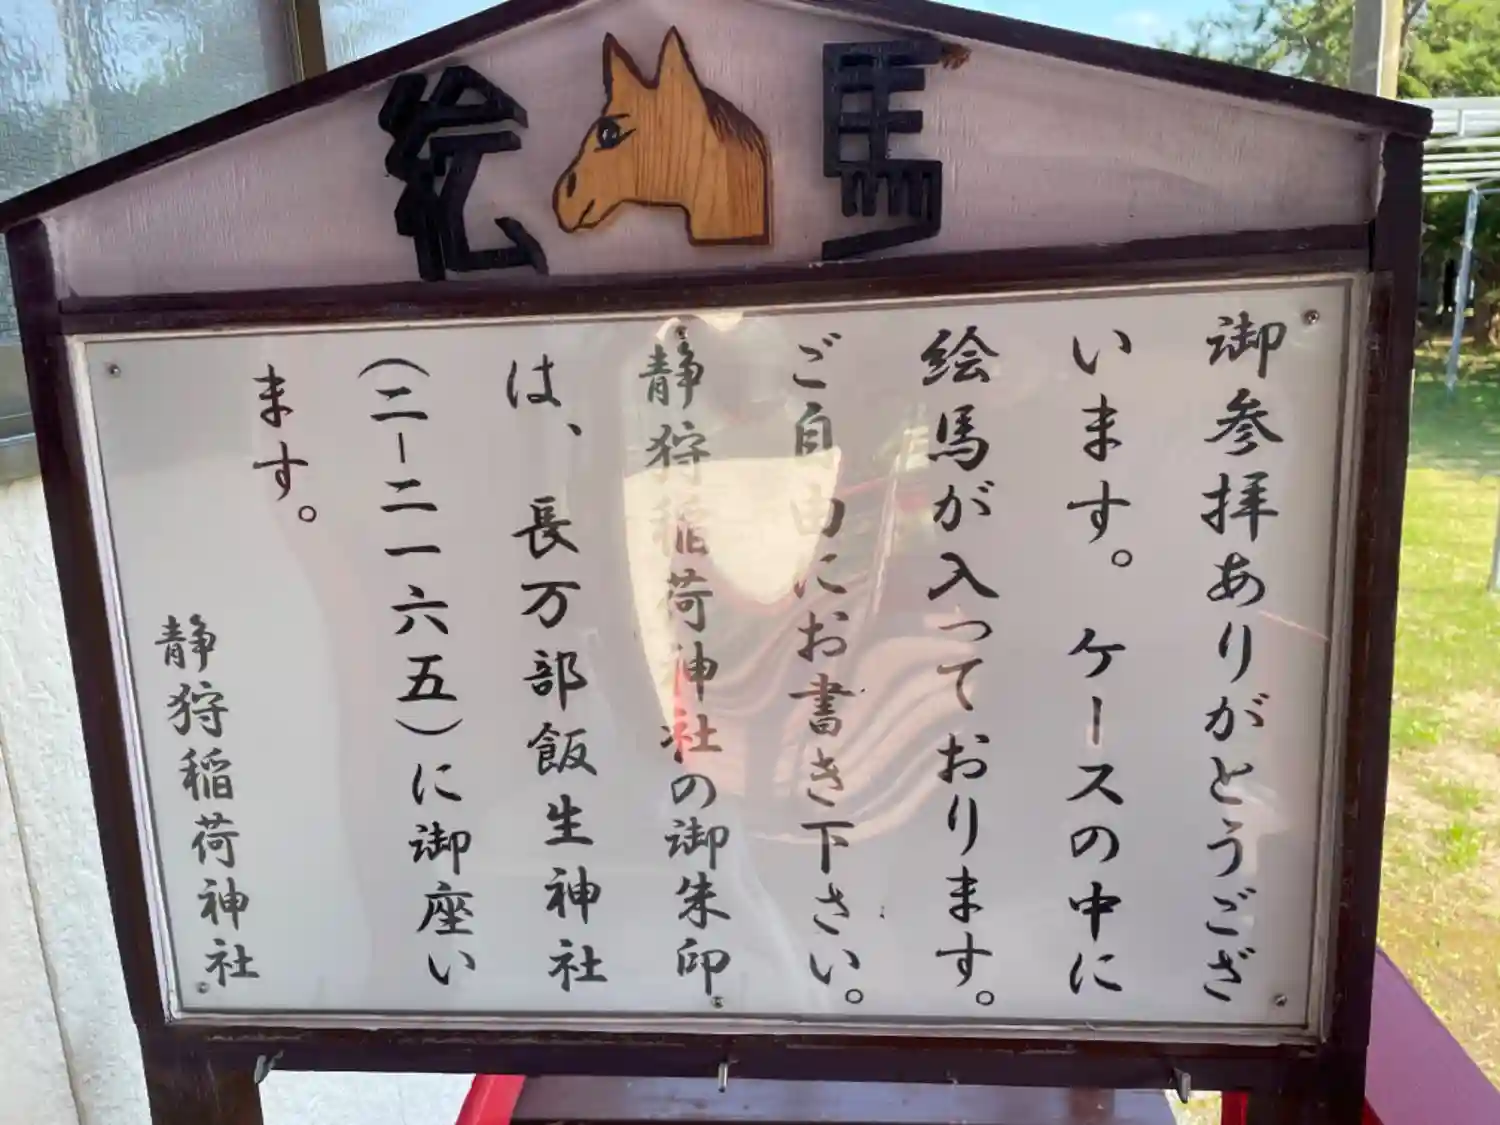 絵馬
御参拝ありがとうござ
います。ケースの中に
絵馬が入っております。
ご自由にお書き下さい。
静狩稲荷神社の御朱印
は、長万部飯生神社
(二-二一六五)に御座い
ます。
静狩稲荷神社